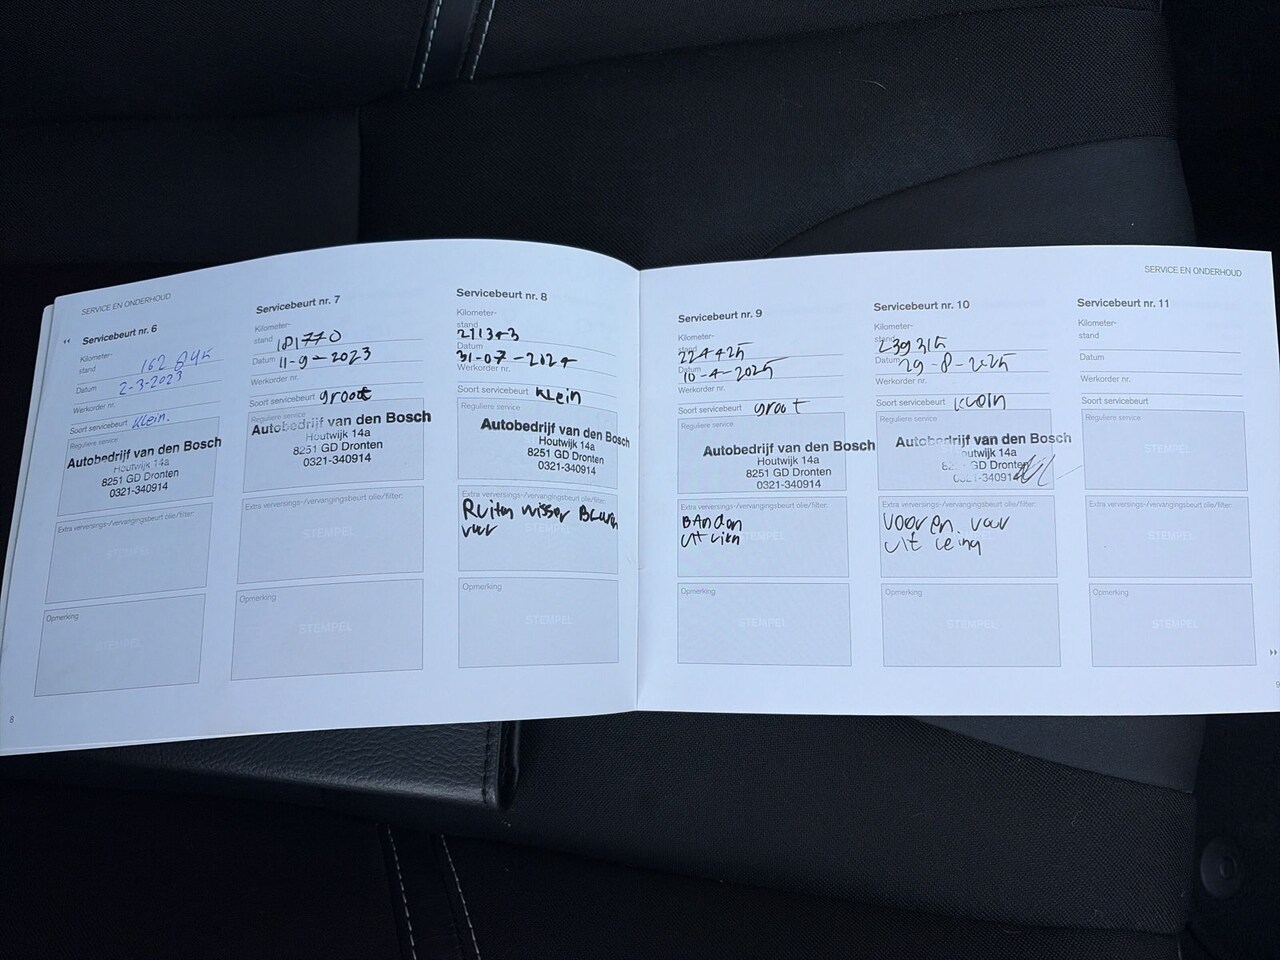 SERVICE EN ONDERHOUD
Servicebeurt nr. 6
Kilometer-
stand 162 845
Datum 2-3-2023
Werkorder nr.
Soort servicebeurt klein.
Reguliere service
Autobedrijf van den Bosch
Houtwijk 14a
8251 GD Dronten
0321-340914
Extra verversings-/vervangingsbeurt olie/filter:
STEMPEL
Opmerking
STEMPEL
8
Servicebeurt nr. 7
Kilometer-
stand 181770
Datum 11-9-2023
Werkorder nr.
Soort servicebeurt groot
Reguliere service
Autobedrijf van den Bosch
Houtwijk 14a
8251 GD Dronten
0321-340914
Extra verversings-/vervangingsbeurt olie/filter:
STEMPEL
Opmerking
STEMPEL
Servicebeurt nr. 8
Kilometer-
stand
211343
Datum
31-07-2024
Werkorder nr.
Soort servicebeurt klein
Autobedrijf van den Bosch
Houtwijk 14a
8251 GD Dronten
0321-340914
Extra verversings-/vervangingsbeurt olie/filter:
Ruiten wisser
STEMPEL
Opmerking
STEMPEL
SERVICE EN ONDERHOUD
Servicebeurt nr. 9
Kilometer-
stand
224425
Datum
10-4-2025
Werkorder nr.
Soort servicebeurt groot
Reguliere service
Autobedrijf van den Bosch
Houtwijk 14a
8251 GD Dronten
0321-340914
Extra verversings-/vervangingsbeurt olie/filter:
Banden
STEMPEL
Opmerking
STEMPEL
Servicebeurt nr. 10
Kilometer-
stand
239315
Datum 29-8-2025
Werkorder nr.
Soort servicebeurt klein
Reguliere service
Autobedrijf van den Bosch
Houtwijk 14a
GD Dronten
0321-340914
Extra verversings-/vervangingsbeurt olie/filter:
voor en
Opmerking
STEMPEL
Servicebeurt nr. 11
Kilometer-
stand
Datum
Werkorder nr.
Soort servicebeurt
Reguliere service
STEMPEL
Extra verversings-/vervangingsbeurt olie/filter:
STEMPEL
Opmerking
STEMPEL
9